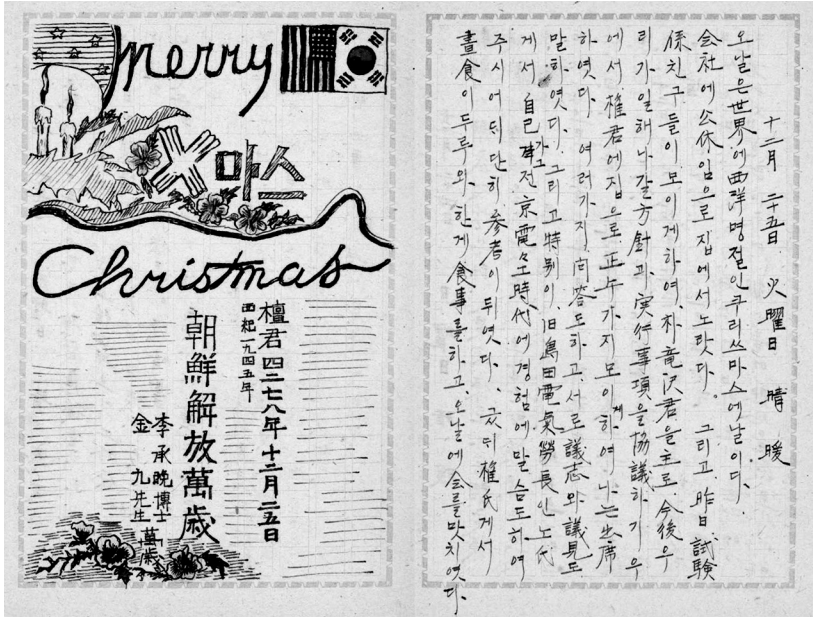 Merry
X마스
Christmas
檀君四二七八年十二月二五日
西紀一九四五年
朝鮮解放萬歲
李承晩博士
金 九先生 萬歲
十二月 二十五日 火曜日 晴 暖
오날은世界에西洋명절인쿠리쓰마스에날이다.
会社에公休임으로집에서노랏다. 그리고昨日試驗
係친구들이모이게하여, 朴竜沢君을主로今後우
리가일해나갈方針과実行事項을協議하기우
에서權君에집으로正午가지모이게하여나는出席
하엿다. 여러가지問答도하고서로議志와議見도
말하엿다. 그리고特別이旧島田電氣勞長인노氏
게서自己가그전京電々工時代에경험에말슴도하여
주시어되단히參考이뒤엿다. 權氏게서
晝食이두루와한게食事를하고오날에会를맛치엿다.